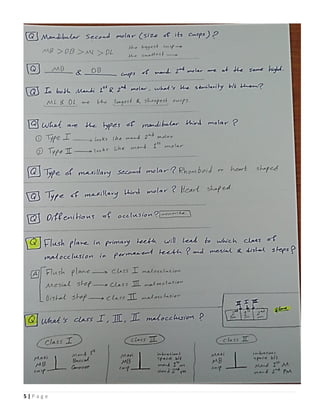 Q Mandibular second molar (size of its cusps)?
MB > DB > ML > DL the biggest cusp →
the smallest →
Q MB & DB cusps of mand 2nd molar are at the same hight.
Q In both Mandi 1st & 2nd molar, what's the similarity b/t them?
ML & DL are the longest & sharpest cusps
Q What are the types of mandibular third molar?
① Type I → looks like mand 2nd molar
② Type II → looks like mand 1st molar
Q Type of maxillary second molar? Rhomboid or heart shaped
Q Type of maxillary third molar? Heart shaped
Q Diffenitions of occlusion?
Q Flush plane in primary teeth will lead to which class of
malocclusion in permanent teeth? and mesial & distal steps?
A Flush plane → class I malocclusion
Mesial step → class III malocclusion
Distal step → class II malocclusion
Q What's class I, II, III malocclusion?
II I III
Class I Class III Class II
Maxi MB cusp mand 1st Buccal Groove
Maxi MB cusp interdental space b/t mand 1st M mand 2nd M
Maxi MB cusp interdental space b/t mand 1st M mand 2nd PM
5 | Page